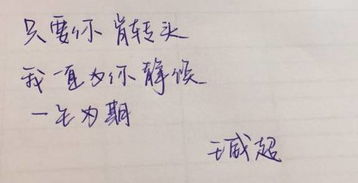 只要你肯转头
我一直为你静候
一生为期
王威超